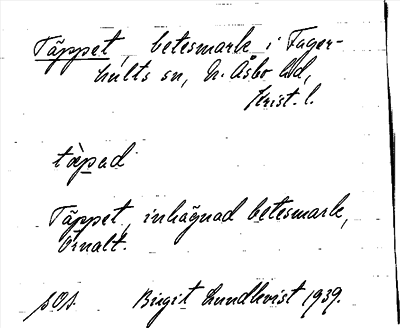 Täppet, betesmark i Fager-
hults sn, N. Åsbo hd,
Krist. l.
tàpad
Täppet, inhägnad betesmark,
Örnalt.
sos. Birgit Lundkvist 1939.